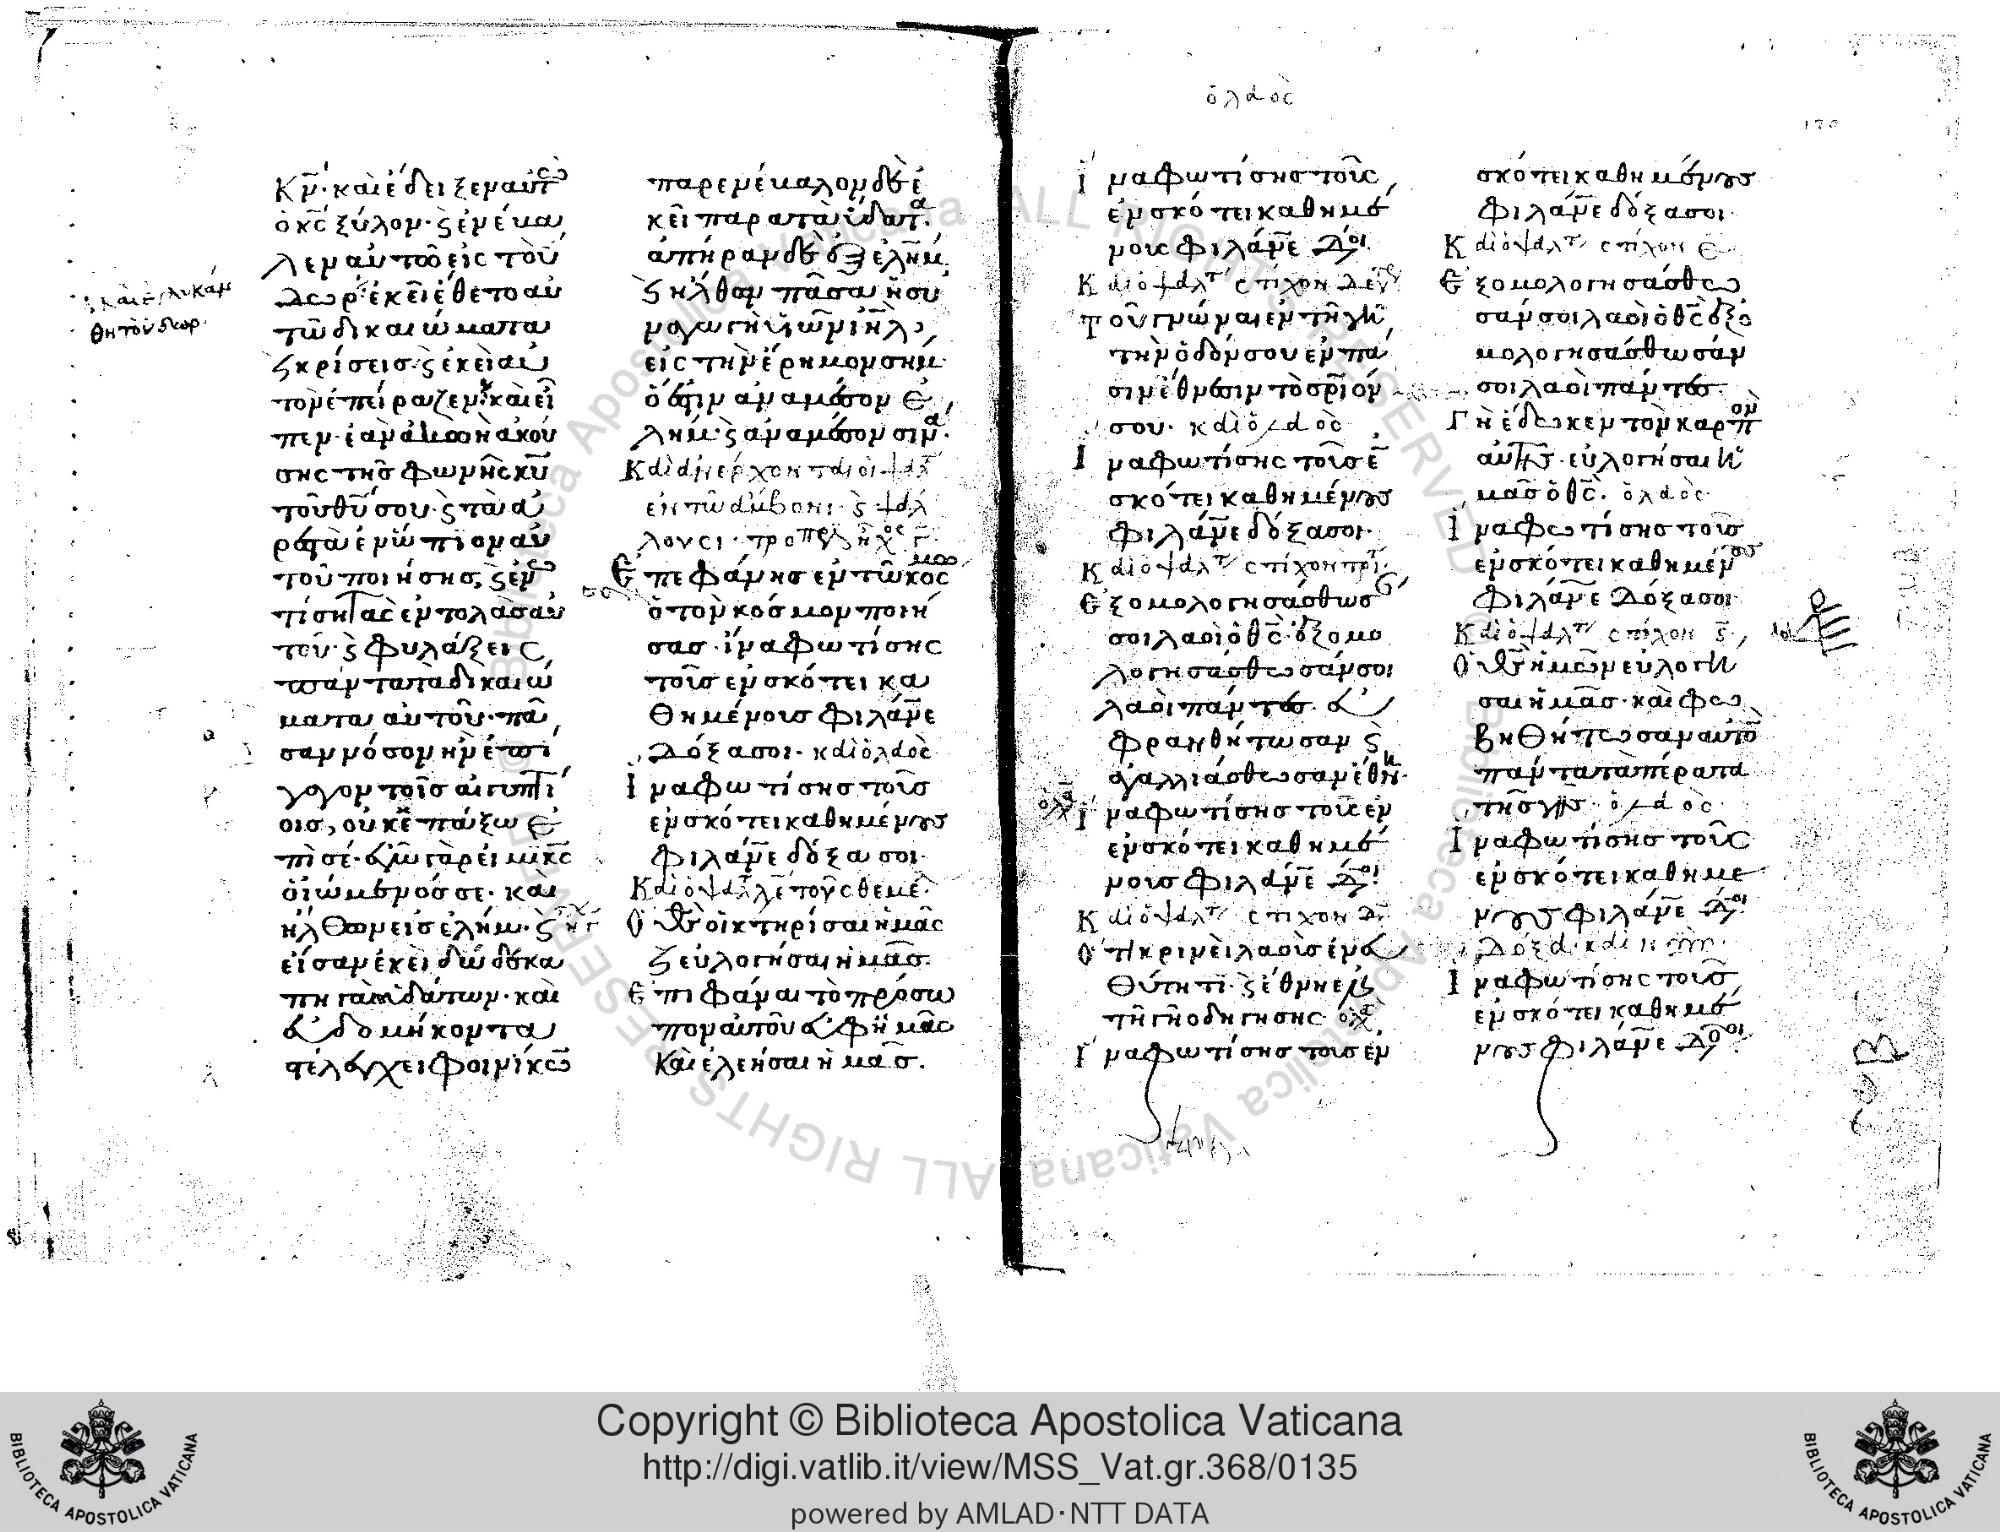 κν· καὶ ἔδειξεν αυτω
ὁ κς ξύλον· ϛ ἐνέβα
λεν αὐτὸ εἰς τὸ ὕ
δωρ· ἐκεῖ ἔθετο αὐ
τῶ δικαιώματα
ϛ κρίσεις· ϛ ἐκεῖ αὐ
τὸν ἐπείραζεν· καὶ εἶ
πεν· ἐὰν ἀκοῆ ἀκού
σης τῆς φωνῆς κυ
τοῦ θυ σου· ϛ τὰ ἀ
ρεστὰ ἐνώπιον αὐ
τοῦ ποιήσης, ϛ ἐνω
τίση τὰς ἐντολὰς αὐ
τοῦ· ϛ φυλάξεις
πάντα τὰ δικαιώ
ματα αὐτοῦ· πᾶ
σαν νόσον ἣν ἐπή
γαγον τοῖς αἰγυπτί
οις, οὐκ ἐπάξω ἐ
πὶ σέ· ἐγὼ γάρ εἰμι κς
ὁ ἰώμενός σε· καὶ
ἦλθον εἰς ἐλήμ· ϛ ἦ
σαν ἐκεῖ δώδεκα
πηγαὶ ὑδάτων· καὶ
ἑβδομήκοντα
στελέχει φοινίκων
παρενέβαλον δὲ ἐ
κεῖ παρὰ τὰ ὕδατα·
ἀπῆραν δὲ ἐξ ἐλήμ·
ϛ ἦλθον πᾶσα ἡ συ
ναγωγὴ υἱῶν ιηλ
εἰς τὴν ἔρημον σήμ·
ὅ ἐστιν ἀναμέσον ἐ
λήμ· ϛ ἀναμέσον σινᾶ·
Καὶ ἀνέρχονται οἱ ψαλτ
ἐν τῶ ἄμβωνι· ϛ ψάλ
λουσι· τροπ ηχος
Ἐπεφάνης ἐν τῶ κοσμω
ὁ τὸν κόσμον ποιή
σας· ἵνα φωτίσης
τοῖς ἐν σκότει κα
θημένοις φιλάνε
δόξα σοι· καὶ ὁ λαὸς
Ἵνα φωτίσης τοῖς
ἐν σκότει καθημένους
φιλάνε δόξα σοι·
Καὶ ὁ ψαλτ λε τοὺς θεμε
Ὁ θς οἰκτηρίσαι ἡμᾶς
ϛ εὐλογήσαι ἡμᾶς·
Ἐπιφάναι τὸ πρόσω
πον αὐτοῦ ἐφ ἡμᾶς
καὶ ἐλεήσαι ἡμᾶς.
ὁ λαὸς
Ἵνα φωτίσης τοῖς
ἐν σκότει καθημέ
νοις φιλάνε
Καὶ ὁ ψαλτ στίχον
Τοῦ γνῶναι ἐν τῆ γῆ
τὴν ὁδόν σου ἐν πᾶ
σιν ἔθνεσιν τὸ σριόν
σου· καὶ ὁ λαὸς
Ἵνα φωτίσης τοῖς ἐν
σκότει καθημένους
φιλάνε δόξα σοι·
Καὶ ὁ ψαλτ στίχον
Ἐξομολογησάσθωσ
σοι λαοὶ ὁ θς· ἐξομο
λογησάσθωσάν σοι
λαοὶ πάντες· εὐ
φρανθήτωσαν ϛ
ἀγαλλιάσθωσαν ἔθνη·
Ἵνα φωτίσης τοῖς ἐν
ἐν σκότει καθημέ
νοις φιλάνε
Καὶ ὁ ψαλτ στίχον
Ὅτι κρινεῖ λαοὺς ἐν εὐ
θύτητι· ϛ ἔθνη ἐν
τῆ γῆ ὁδηγήσης
Ἵνα φωτίσης τοῖς ἐν
σκότει καθημένους
φιλάνε δόξα σοι·
Καὶ ὁ ψαλτ στίχον ε
Ἐξομολογησάσθω
σάν σοι λαοὶ ὁ θς ἐξο
μολογησάσθωσάν
σοι λαοὶ πάντες·
Γῆ ἔδωκεν τὸν καρπον
αὐτῆς· εὐλογήσαι ἡ
μᾶς ὁ θς. ὁ λαὸς
Ἵνα φωτίσης τοῖς
ἐν σκότει καθημένους
φιλάνε δόξα σοι·
Καὶ ὁ ψαλτ στίχον ϛ
Ὁ θς ἡμῶν εὐλογή
σαι ἡμᾶς· καὶ φο
βηθήτωσαν αὐτὸ
πάντα τὰ πέρατα
τῆς γῆς· ὁ λαὸς
Ἵνα φωτίσης τοῖς
ἐν σκότει καθημέ
νους φιλάνε
Δόξα· καὶ νῦν·
Ἵνα φωτίσης τοῖς
ἐν σκότει καθημέ
νους φιλάνε
Copyright © Biblioteca Apostolica Vaticana
http://digi.vatlib.it/view/MSS_Vat.gr.368/0135
powered by AMLAD·NTT DATA
BIBLIOTECA APOSTOLICA VATICANA
BIBLIOTECA APOSTOLICA VATICANA